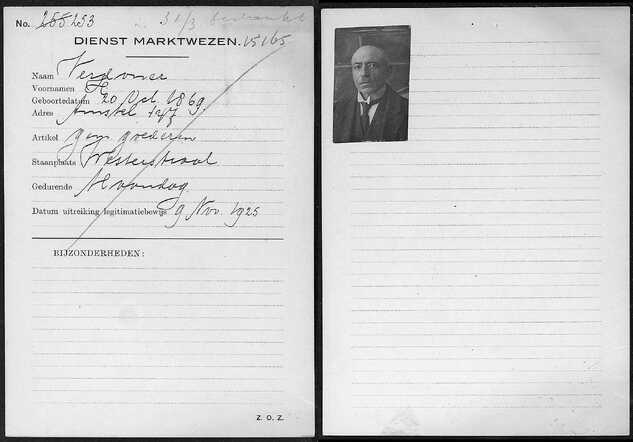 No. 255253 31/3 bedankt
DIENST MARKTWEZEN. 15165
Naam Verdoner
Voornamen H
Geboortedatum 20 Oct. 1869.
Adres Amstel
Artikel gem goederen
Staanplaats Westerstraat
Gedurende Maandag
Datum uitreiking legitimatiebewijs 9 Nov. 1925
BIJZONDERHEDEN:
Z. O. Z.